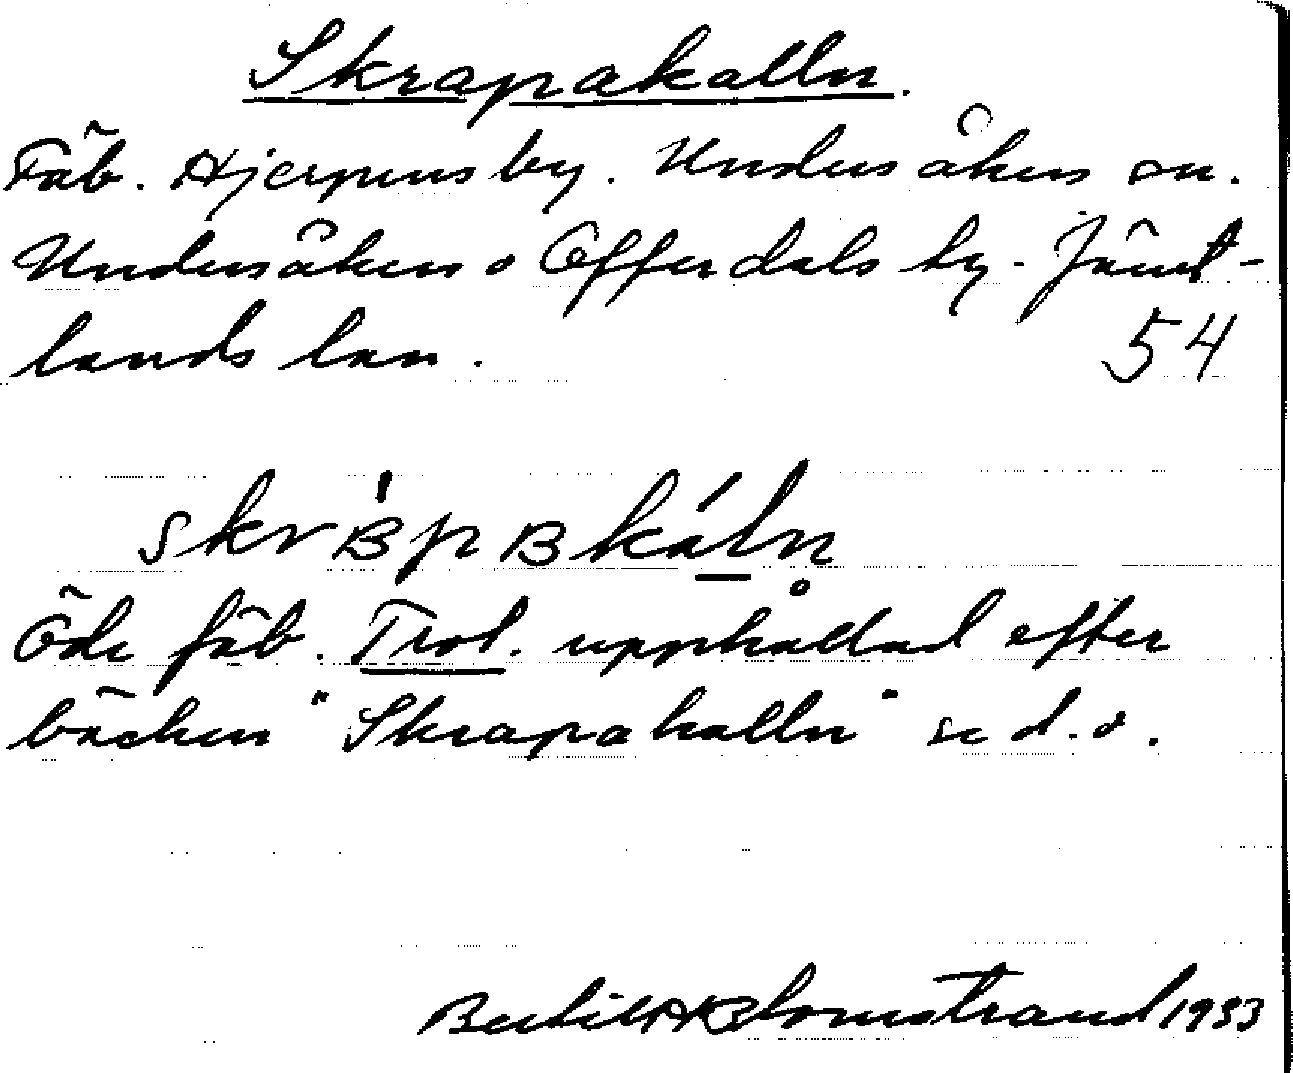 Skrapakalln.
Fäb. Hjerpens by. Undersåkers sn.
Undersåkers o Offerdals tg. Jämt-
lands län. 54
skrʙ̍pʙkáln
Öde fäb. Trol. uppkallad efter
bäcken "Skrapakalln" se d.o.
Bertil A Blomstrand 1933